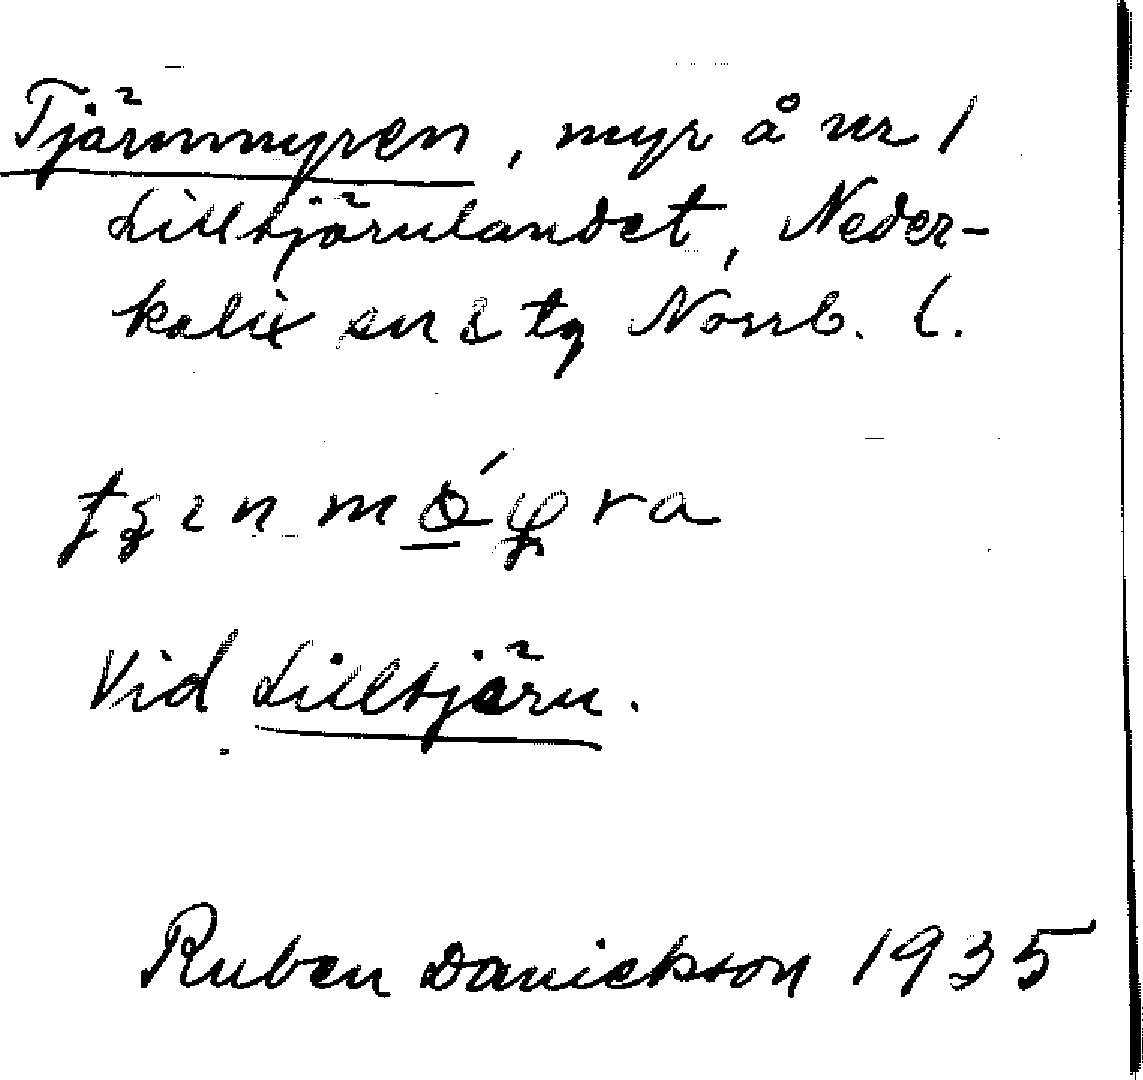 Tjärnmyren, myr å nr 1
Lilltjärnlandet, Neder-
kalix sn & tg Norrb. l.
Vid Lilltjärn.
Ruben Danielsson 1935